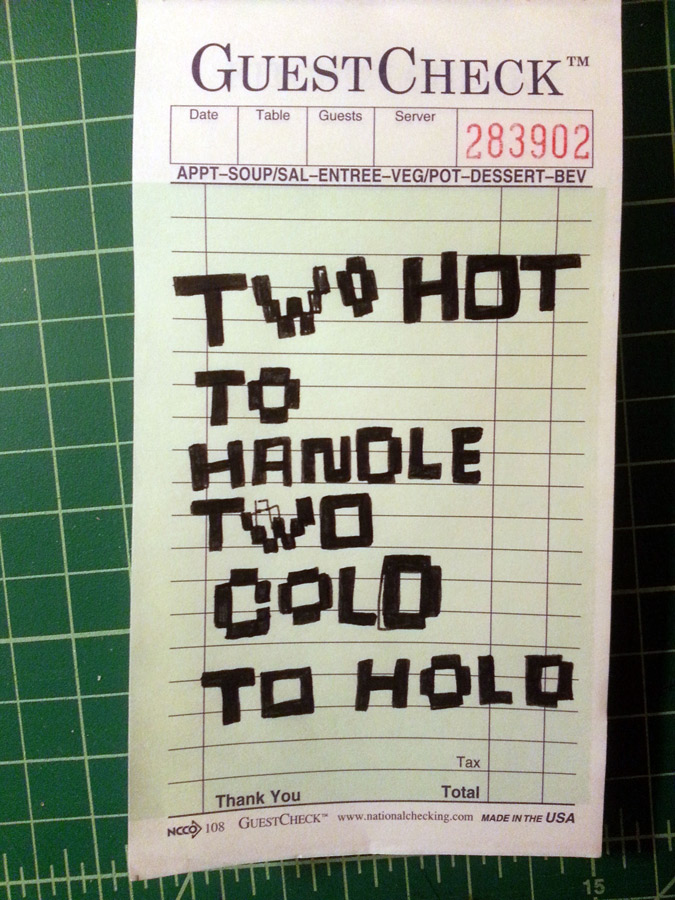 GUESTCHECK™
Date Table Guests Server 283902
APPT–SOUP/SAL–ENTREE–VEG/POT–DESSERT–BEV
TWO HOT
TO
HANDLE
TWO
COLD
TO HOLD
Tax
Thank You Total
NCCO 108 GUESTCHECK™ www.nationalchecking.com MADE IN THE USA
15